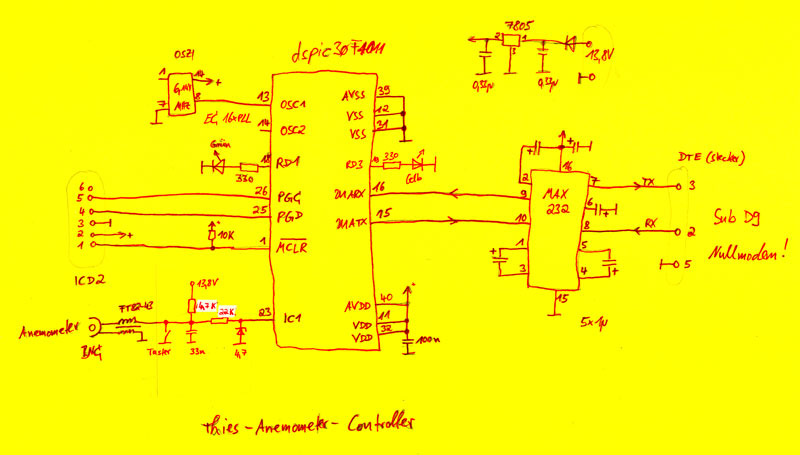 7805
2 1
3
0,33µ 0,33µ 13,8V
OSZ1
1 14 +
7 8
MHZ
dspic30F4011
13 OSC1
EC, 16xPLL
14 OSC2
Grün
330
18 RD1
26 PGC
25 PGD
10K
1 MCLR
23 IC1
AVSS 39
VSS 12
VSS 31
RD3 330
Gelb
16
15
AVDD 40
VDD 11
VDD 32
100n
6
5
4
3
2 +
1
ICD2
MAX
232
16
2
9
10
1
3
7
6
8
5
4
15
5x1µ
TX
RX
DTE (Stecker)
3
2
5
Sub D9
Nullmodem!
Anemometer
BNC
FT82-43
Taster
13,8V
4,7K
22K
33n
4,7
Thies-Anemometer-Controller